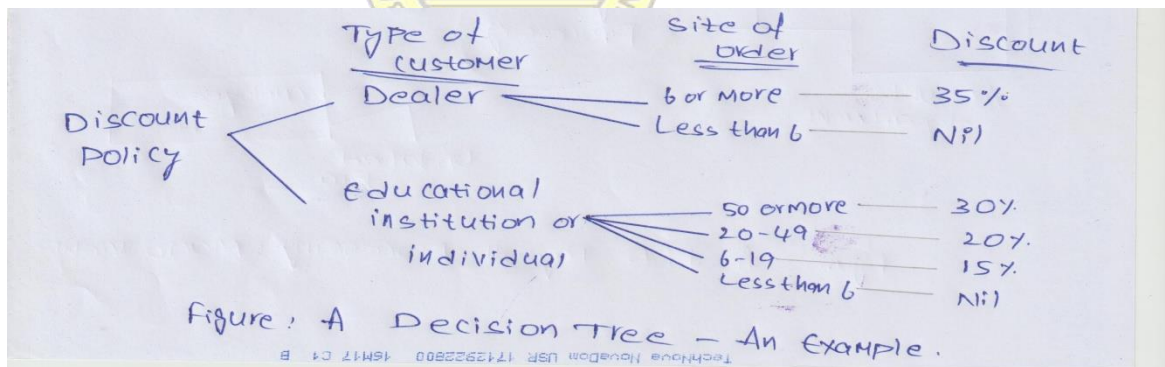 Type of customer    Size of order    Discount
Discount Policy
Dealer    6 or more    35%
Less than 6    Nil
Educational institution or individual    50 or more    30%
20-49    20%
6-19    15%
Less than 6    Nil
Figure: A Decision Tree – An Example.